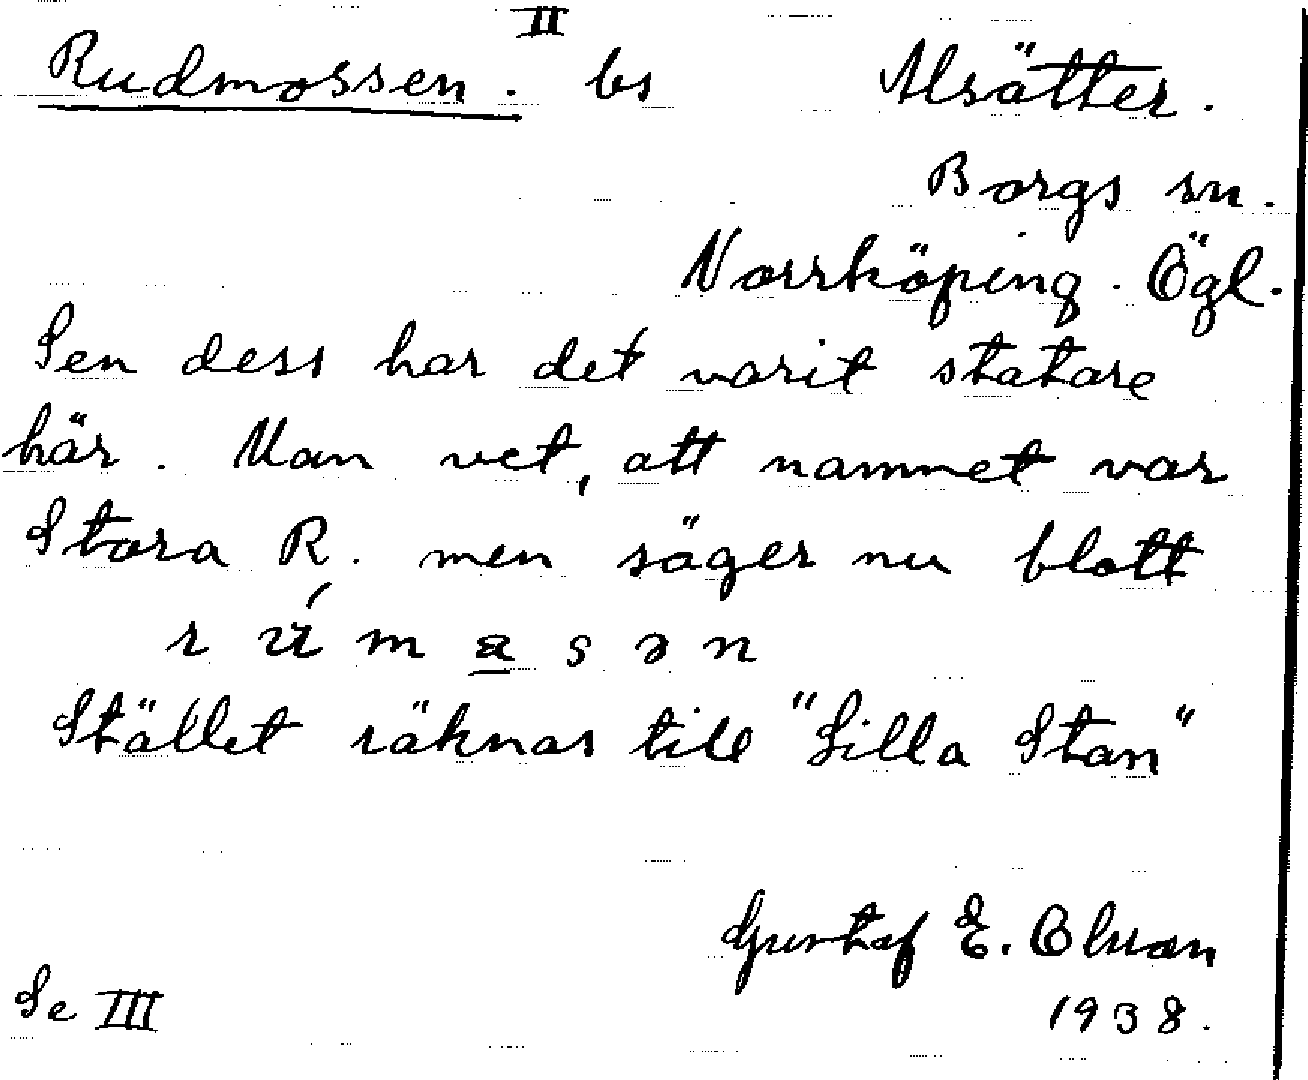 II
Rudmossen. bs Alsätter.
Borgs sn.
Norrköping. Ögl.
Sen dess har det varit statare
här. Man vet, att namnet var
Stora R. men säger nu blott
r ú m a s ə n
Stället räknas till "Lilla Stan"
Gustaf E. Olsson
Se III 1938.